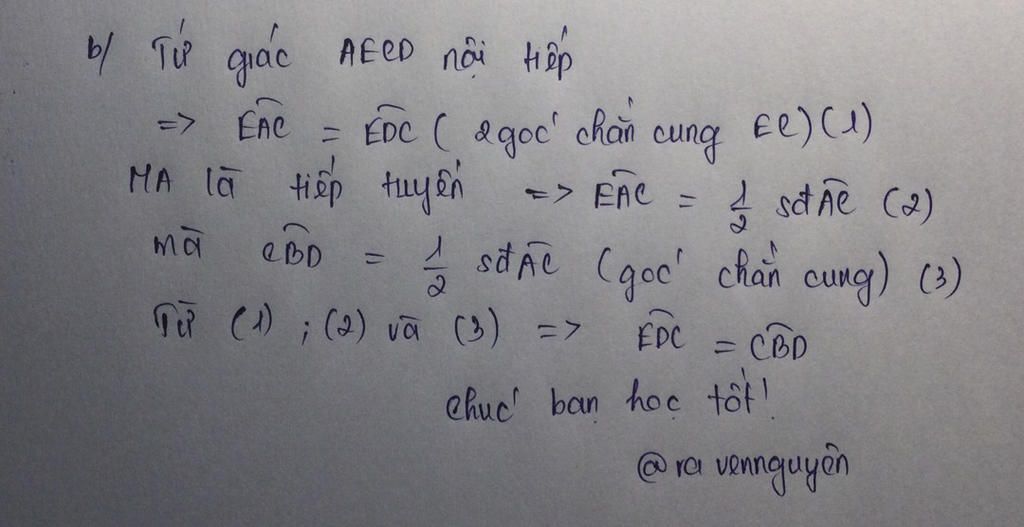 b/ Tứ giác AECD nội tiếp
=> EAC = EDC ( 2 góc chắn cung EC) (1)
MA là tiếp tuyến => EAC = 1/2 sđ AC (2)
mà CBD = 1/2 sđ AC (góc chắn cung) (3)
Từ (1) ; (2) và (3) => EDC = CBD
chúc bạn học tốt!
@ra vennguyên